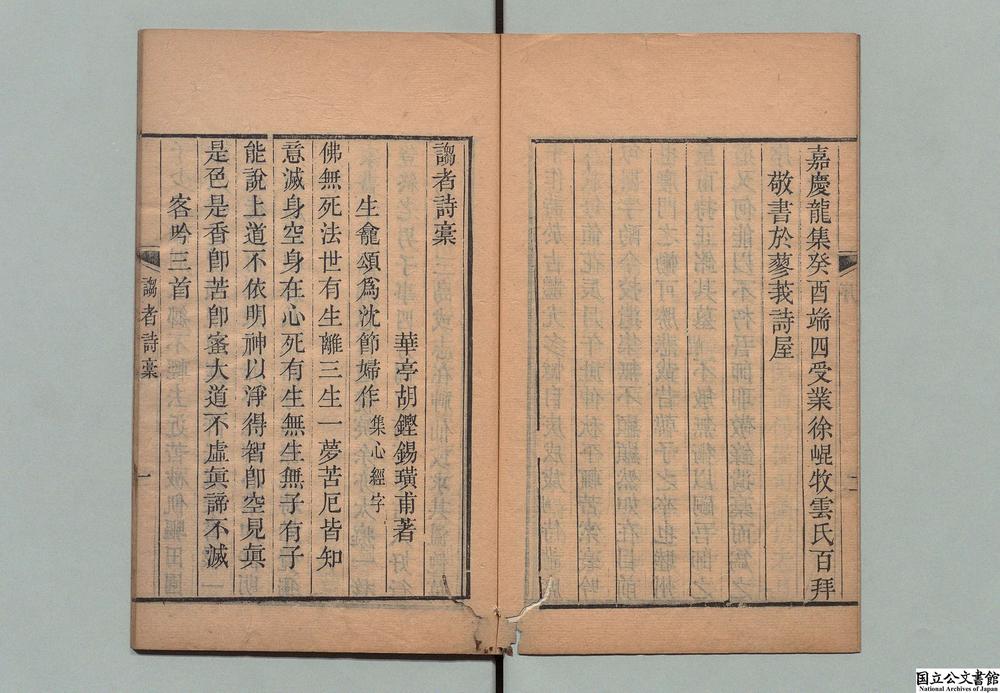 嘉慶龍集癸酉端四受業徐崐牧雲氏百拜
敬書於蓼莪詩屋
二
謅者詩稾
華亭胡鏗錫璜甫著
生龕頌爲沈節婦作 集心經字
佛無死法世有生離三生一夢苦厄皆知
意滅身空身在心死有生無生無子有子
能說上道不依明神以淨得智卽空見眞
是色是香卽苦卽蜜大道不虛眞諦不滅
客吟三首
謅者詩稾
一
国立公文書館
National Archives of Japan